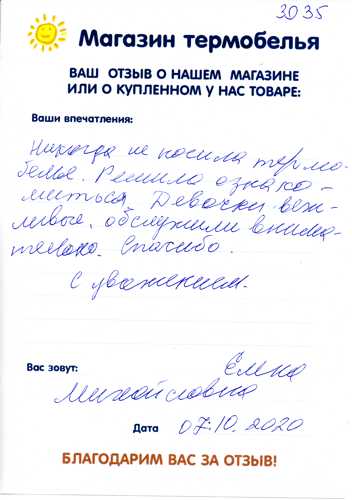 3035
Магазин термобелья
ВАШ ОТЗЫВ О НАШЕМ МАГАЗИНЕ
ИЛИ О КУПЛЕННОМ У НАС ТОВАРЕ:
Ваши впечатления:
Никогда не носила термо-
белье. Решила ознако-
миться. Девочки веж-
ливые, обслужили внима-
тельно. Спасибо.
С уважением.
Вас зовут:
Елена
Михайловна
Дата 07.10.2020
БЛАГОДАРИМ ВАС ЗА ОТЗЫВ!